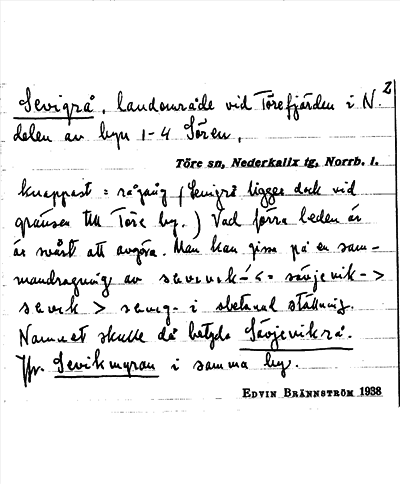 2
Sevigrå, landområde vid Törefjärden i N.
delen av byn 1-4 Sören,
Töre sn, Nederkalix tg, Norrb. l.
knappast = rågång (Sevigrå ligger dock vid
gränsen till Töre by.) Vad förra leden är
är svårt att avgöra. Man kan gissa på en sam-
mandragning av < = sävjevik- >
sevek > seveg- i obetonad ställning.
Namnet skulle då betyda Sävjevikrå.
Jfr. Sevikmyran i samma by.
EDVIN BRÄNNSTRÖM 1938